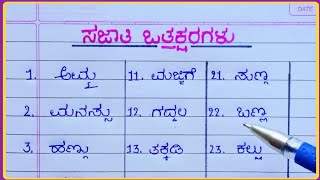 DATE
ಸಜಾತಿ ಒತ್ತಕ್ಷರಗಳು
1. ಅಮ್ಮ 11. ಮಜ್ಜಿಗೆ 21. ಸುಣ್ಣ
2. ಮನಸ್ಸು 12. ಗದ್ದಲ 22. ಬಣ್ಣ
3. ಹಣ್ಣು 13. ತಕ್ಕಡಿ 23. ಕಲ್ಲು